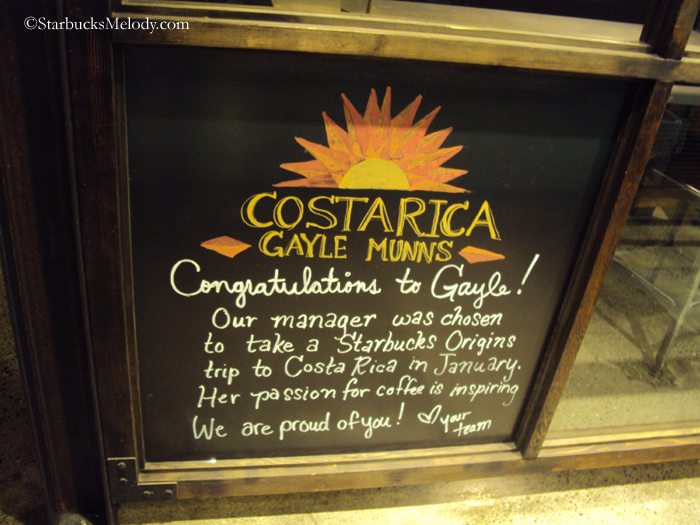 ©StarbucksMelody.com
COSTARICA
GAYLE MUNNS
Congratulations to Gayle!
Our manager was chosen
to take a Starbucks Origins
trip to Costa Rica in January.
Her passion for coffee is inspiring
We are proud of you! ♡ your
team